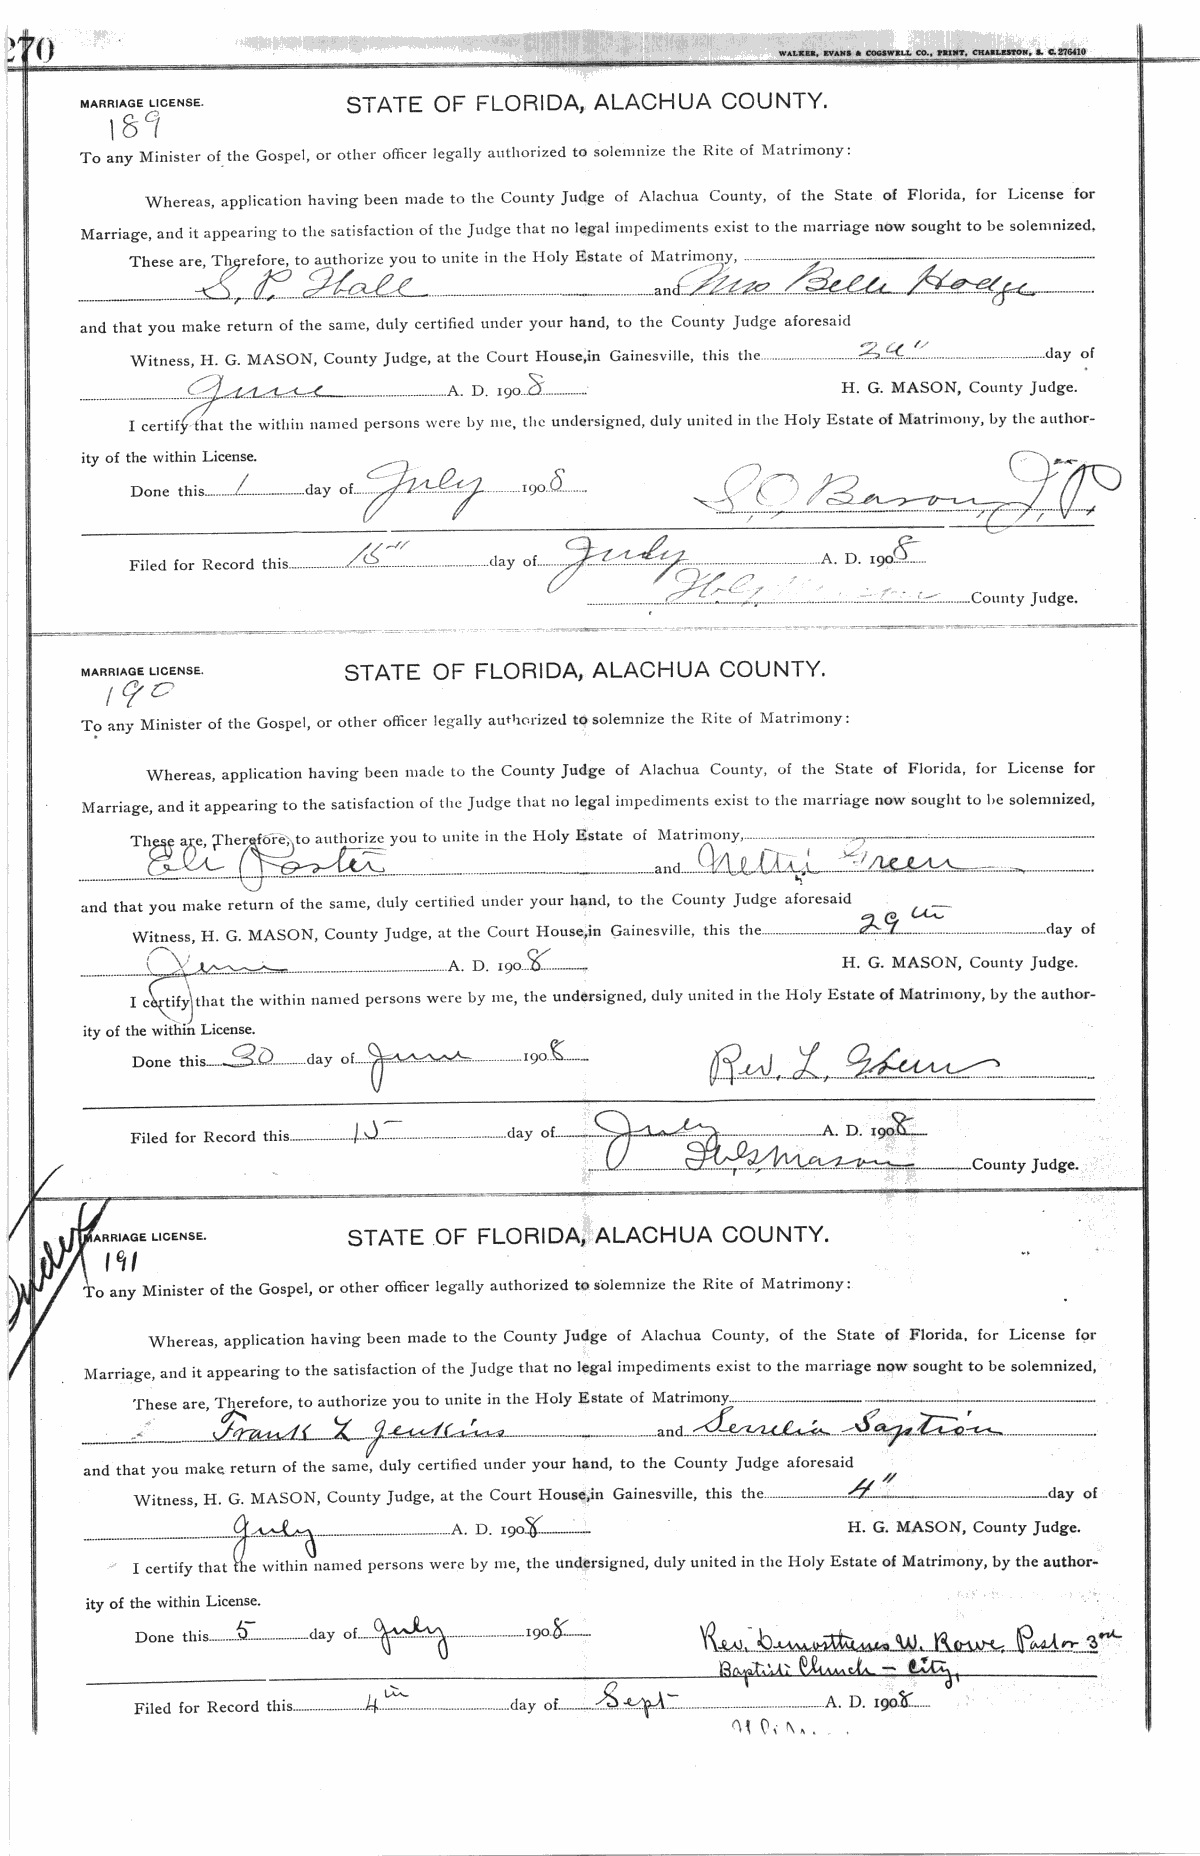 270
WALKER, EVANS & COGSWELL CO., PRINT, CHARLESTON, S. C. 276410
MARRIAGE LICENSE. STATE OF FLORIDA, ALACHUA COUNTY.
189
To any Minister of the Gospel, or other officer legally authorized to solemnize the Rite of Matrimony:
Whereas, application having been made to the County Judge of Alachua County, of the State of Florida, for License for
Marriage, and it appearing to the satisfaction of the Judge that no legal impediments exist to the marriage now sought to be solemnized.
These are, Therefore, to authorize you to unite in the Holy Estate of Matrimony,
S. P. Hall and Mrs Belle Hodge
and that you make return of the same, duly certified under your hand, to the County Judge aforesaid
Witness, H. G. MASON, County Judge, at the Court House, in Gainesville, this the day of
June A. D. 1908 H. G. MASON, County Judge.
I certify that the within named persons were by me, the undersigned, duly united in the Holy Estate of Matrimony, by the author-
ity of the within License.
Done this 1 day of July 1908 S. O. Bason, J. P.
Filed for Record this 15" day of July A. D. 1908
H. G. Mason County Judge.
MARRIAGE LICENSE. STATE OF FLORIDA, ALACHUA COUNTY.
190
To any Minister of the Gospel, or other officer legally authorized to solemnize the Rite of Matrimony:
Whereas, application having been made to the County Judge of Alachua County, of the State of Florida, for License for
Marriage, and it appearing to the satisfaction of the Judge that no legal impediments exist to the marriage now sought to be solemnized,
These are, Therefore, to authorize you to unite in the Holy Estate of Matrimony,
Eli Poster and Netti Green
and that you make return of the same, duly certified under your hand, to the County Judge aforesaid
Witness, H. G. MASON, County Judge, at the Court House, in Gainesville, this the 29th day of
June A. D. 1908 H. G. MASON, County Judge.
I certify that the within named persons were by me, the undersigned, duly united in the Holy Estate of Matrimony, by the author-
ity of the within License.
Done this 30 day of June 1908 Rev. L.
Filed for Record this 15 day of July A. D. 1908
H. G. Mason County Judge.
MARRIAGE LICENSE. STATE OF FLORIDA, ALACHUA COUNTY.
191
To any Minister of the Gospel, or other officer legally authorized to solemnize the Rite of Matrimony:
Whereas, application having been made to the County Judge of Alachua County, of the State of Florida, for License for
Marriage, and it appearing to the satisfaction of the Judge that no legal impediments exist to the marriage now sought to be solemnized,
These are, Therefore, to authorize you to unite in the Holy Estate of Matrimony
Frank L Jenkins and Serrelia Saption
and that you make return of the same, duly certified under your hand, to the County Judge aforesaid
Witness, H. G. MASON, County Judge, at the Court House, in Gainesville, this the 4" day of
July A. D. 1908 H. G. MASON, County Judge.
I certify that the within named persons were by me, the undersigned, duly united in the Holy Estate of Matrimony, by the author-
ity of the within License.
Done this 5 day of July 1908 Rev. Demosthenes W. Rowe, Pastor 3rd
Baptist Church - City,
Filed for Record this 4th day of Sept A. D. 1908